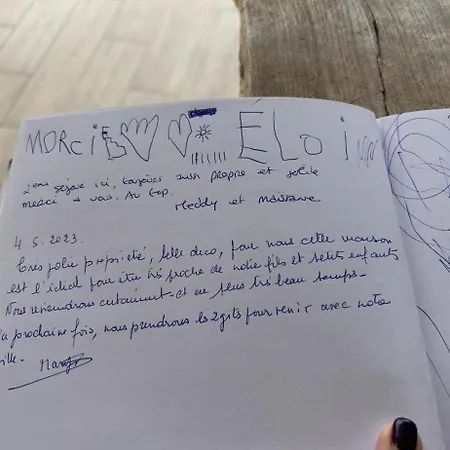 MORCI ELOi
2ème séjour ici, toujours aussi propre et
merci à vous. Au top.
Meddy et
4.5.2023.
Très jolie propriété, belle déco, pour nous cette maison
est l'idéal pour être très proche de notre fils et petits enfants
Nous reviendrons certainement et en plus très beau temps.
La prochaine fois, nous prendrons les 2 gîts pour venir avec notre
fille.